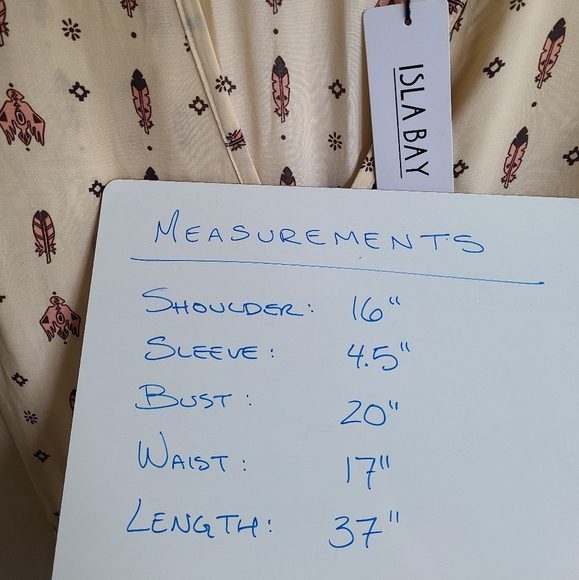 ISLA BAY
MEASUREMENTS
SHOULDER: 16"
SLEEVE: 4.5"
BUST: 20"
WAIST: 17"
LENGTH: 37"